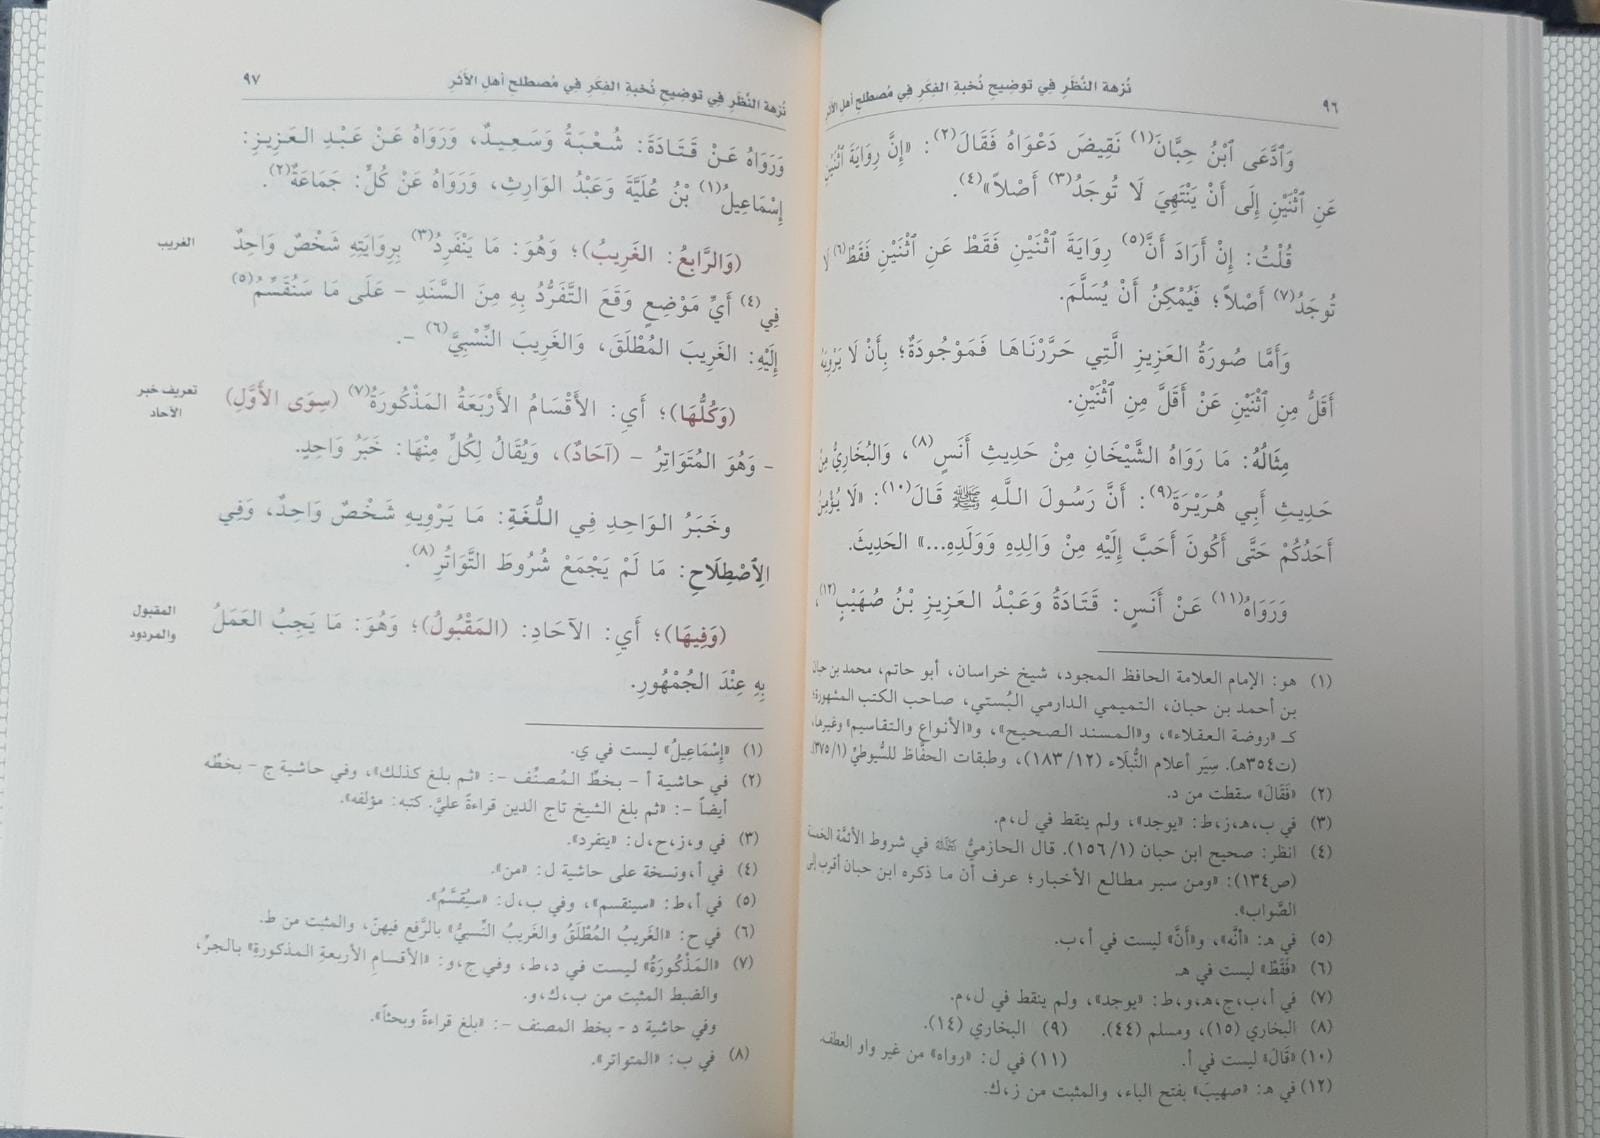 نُزهة النَّظَرِ فِي توضِيحِ نُخبةِ الفِكَرِ فِي مُصطلحِ أهلِ الأَثر
٩٦
وَٱدَّعَى ٱبْنُ حِبَّانَ(١) نَقِيضَ دَعْوَاهُ فَقَالَ(٢): «إِنَّ رِوَايَةَ ٱثْنَيْنِ
عَنِ ٱثْنَيْنِ إِلَى أَنْ يَنْتَهِيَ لَا تُوجَدُ(٣) أَصْلاً»(٤).
قُلْتُ: إِنْ أَرَادَ أَنَّ(٥) رِوَايَةَ ٱثْنَيْنِ فَقَطْ عَنِ ٱثْنَيْنِ فَقَطْ(٦) لَا
تُوجَدُ(٧) أَصْلاً؛ فَيُمْكِنُ أَنْ يُسَلَّمَ.
وَأَمَّا صُورَةُ العَزِيزِ الَّتِي حَرَّرْنَاهَا فَمَوْجُودَةٌ؛ بِأَنْ لَا يَرْوِيَهُ
أَقَلُّ مِنِ ٱثْنَيْنِ عَنْ أَقَلَّ مِنِ ٱثْنَيْنِ.
مِثَالُهُ: مَا رَوَاهُ الشَّيْخَانِ مِنْ حَدِيثِ أَنَسٍ(٨)، وَالبُخَارِيُّ مِنْ
حَدِيثِ أَبِي هُرَيْرَةَ(٩): أَنَّ رَسُولَ اللَّهِ ﷺ قَالَ(١٠): «لَا يُؤْمِنُ
أَحَدُكُمْ حَتَّى أَكُونَ أَحَبَّ إِلَيْهِ مِنْ وَالِدِهِ وَوَلَدِهِ...» الحَدِيثَ.
وَرَوَاهُ(١١) عَنْ أَنَسٍ: قَتَادَةُ وَعَبْدُ العَزِيزِ بْنُ صُهَيْبٍ(١٢)،
(١) هو: الإمام العلامة الحافظ المجود، شيخ خراسان، أبو حاتم، محمد بن حبان
بن أحمد بن حبان، التميمي الدارمي البُستي، صاحب الكتب المشهورة؛
كـ «روضة العقلاء»، و«المسند الصحيح»، و«الأنواع والتقاسيم» وغيرها،
(ت٣٥٤هـ). سِيَر أعلام النُّبلَاء (١٢/ ١٨٣)، وطبقات الحفَّاظ للسُّيوطيِّ (١/ ٣٧٥).
(٢) «فَقَالَ» سقطت من د.
(٣) في ب،هـ،ز،ط: «يوجد»، ولم ينقط في ل،م.
(٤) انظر: صحيح ابن حبان (١/ ١٥٦). قال الحازميُّ ﵀ في شروط الأئمَّة الخمسة
(ص١٣٤): «ومن سبر مطالع الأخبار؛ عرف أن ما ذكره ابن حبان أقرب إلى
الصَّواب».
(٥) في هـ: «أنَّه»، و«أَنَّ» ليست في أ،ب.
(٦) «فَقَطْ» ليست في هـ.
(٧) في أ،ب،ج،هـ،و،ط: «يوجد»، ولم ينقط في ل،م.
(٨) البخاري (١٥)، ومسلم (٤٤). (٩) البخاري (١٤).
(١٠) «قَالَ» ليست في أ. (١١) في ل: «رواه» من غير واو العطف.
(١٢) في هـ: «صهيبَ» بفتح الباء، والمثبت من ز،ك.
نُزهة النَّظَرِ فِي توضِيحِ نُخبةِ الفِكَرِ فِي مُصطلحِ أهلِ الأَثَر
٩٧
وَرَوَاهُ عَنْ قَتَادَةَ: شُعْبَةُ وَسَعِيدٌ، وَرَوَاهُ عَنْ عَبْدِ العَزِيزِ:
إِسْمَاعِيلُ(١) بْنُ عُلَيَّةَ وَعَبْدُ الوَارِثِ، وَرَوَاهُ عَنْ كُلٍّ: جَمَاعَةٌ(٢).
الغريب
(وَالرَّابِعُ: الغَرِيبُ)؛ وَهُوَ: مَا يَنْفَرِدُ(٣) بِرِوَايَتِهِ شَخْصٌ وَاحِدٌ
فِي(٤) أَيِّ مَوْضِعٍ وَقَعَ التَّفَرُّدُ بِهِ مِنَ السَّنَدِ - عَلَى مَا سَنُقَسِّمُ(٥)
إِلَيْهِ: الغَرِيبَ المُطْلَقَ، وَالغَرِيبَ النِّسْبِيَّ(٦) -.
تعريف خبر
الآحاد
(وَكُلُّهَا)؛ أَيِ: الأَقْسَامُ الأَرْبَعَةُ المَذْكُورَةُ(٧) (سِوَى الأَوَّلِ)
- وَهُوَ المُتَوَاتِرُ - (آحَادٌ)، وَيُقَالُ لِكُلٍّ مِنْهَا: خَبَرُ وَاحِدٍ.
وخَبَرُ الوَاحِدِ فِي اللُّغَةِ: مَا يَرْوِيهِ شَخْصٌ وَاحِدٌ، وَفِي
الِٱصْطِلَاحِ: مَا لَمْ يَجْمَعْ شُرُوطَ التَّوَاتُرِ(٨).
المقبول
والمردود
(وَفِيهَا)؛ أَيِ: الآحَادِ: (المَقْبُولُ)؛ وَهُوَ: مَا يَجِبُ العَمَلُ
بِهِ عِنْدَ الجُمْهُورِ.
(١) «إِسْمَاعِيلُ» ليست في ي.
(٢) في حاشية أ - بخطِّ المُصنِّف -: «ثم بلغ كذلك»، وفي حاشية ج - بخطه
أيضاً -: «ثم بلغ الشيخ تاج الدين قراءةً عليَّ. كتبه: مؤلفه».
(٣) في و،ز،ح،ل: «يتفرد».
(٤) في أ،ونسخة على حاشية ل: «من».
(٥) في أ،ط: «سينقسم»، وفي ب،ل: «سيُقَسَّمُ».
(٦) في ح: «الغَرِيبُ المُطْلَقُ والغَرِيبُ النِّسبيُّ» بالرَّفع فيهنّ، والمثبت من ط.
(٧) «المَذْكُورَةُ» ليست في د،ط، وفي ج،و: «الأقسامِ الأربعةِ المذكورةِ» بالجرِّ،
والضبط المثبت من ب،ك،و.
وفي حاشية د - بخط المصنف -: «بلغ قراءةً وبحثاً».
(٨) في ب: «المتواتر».